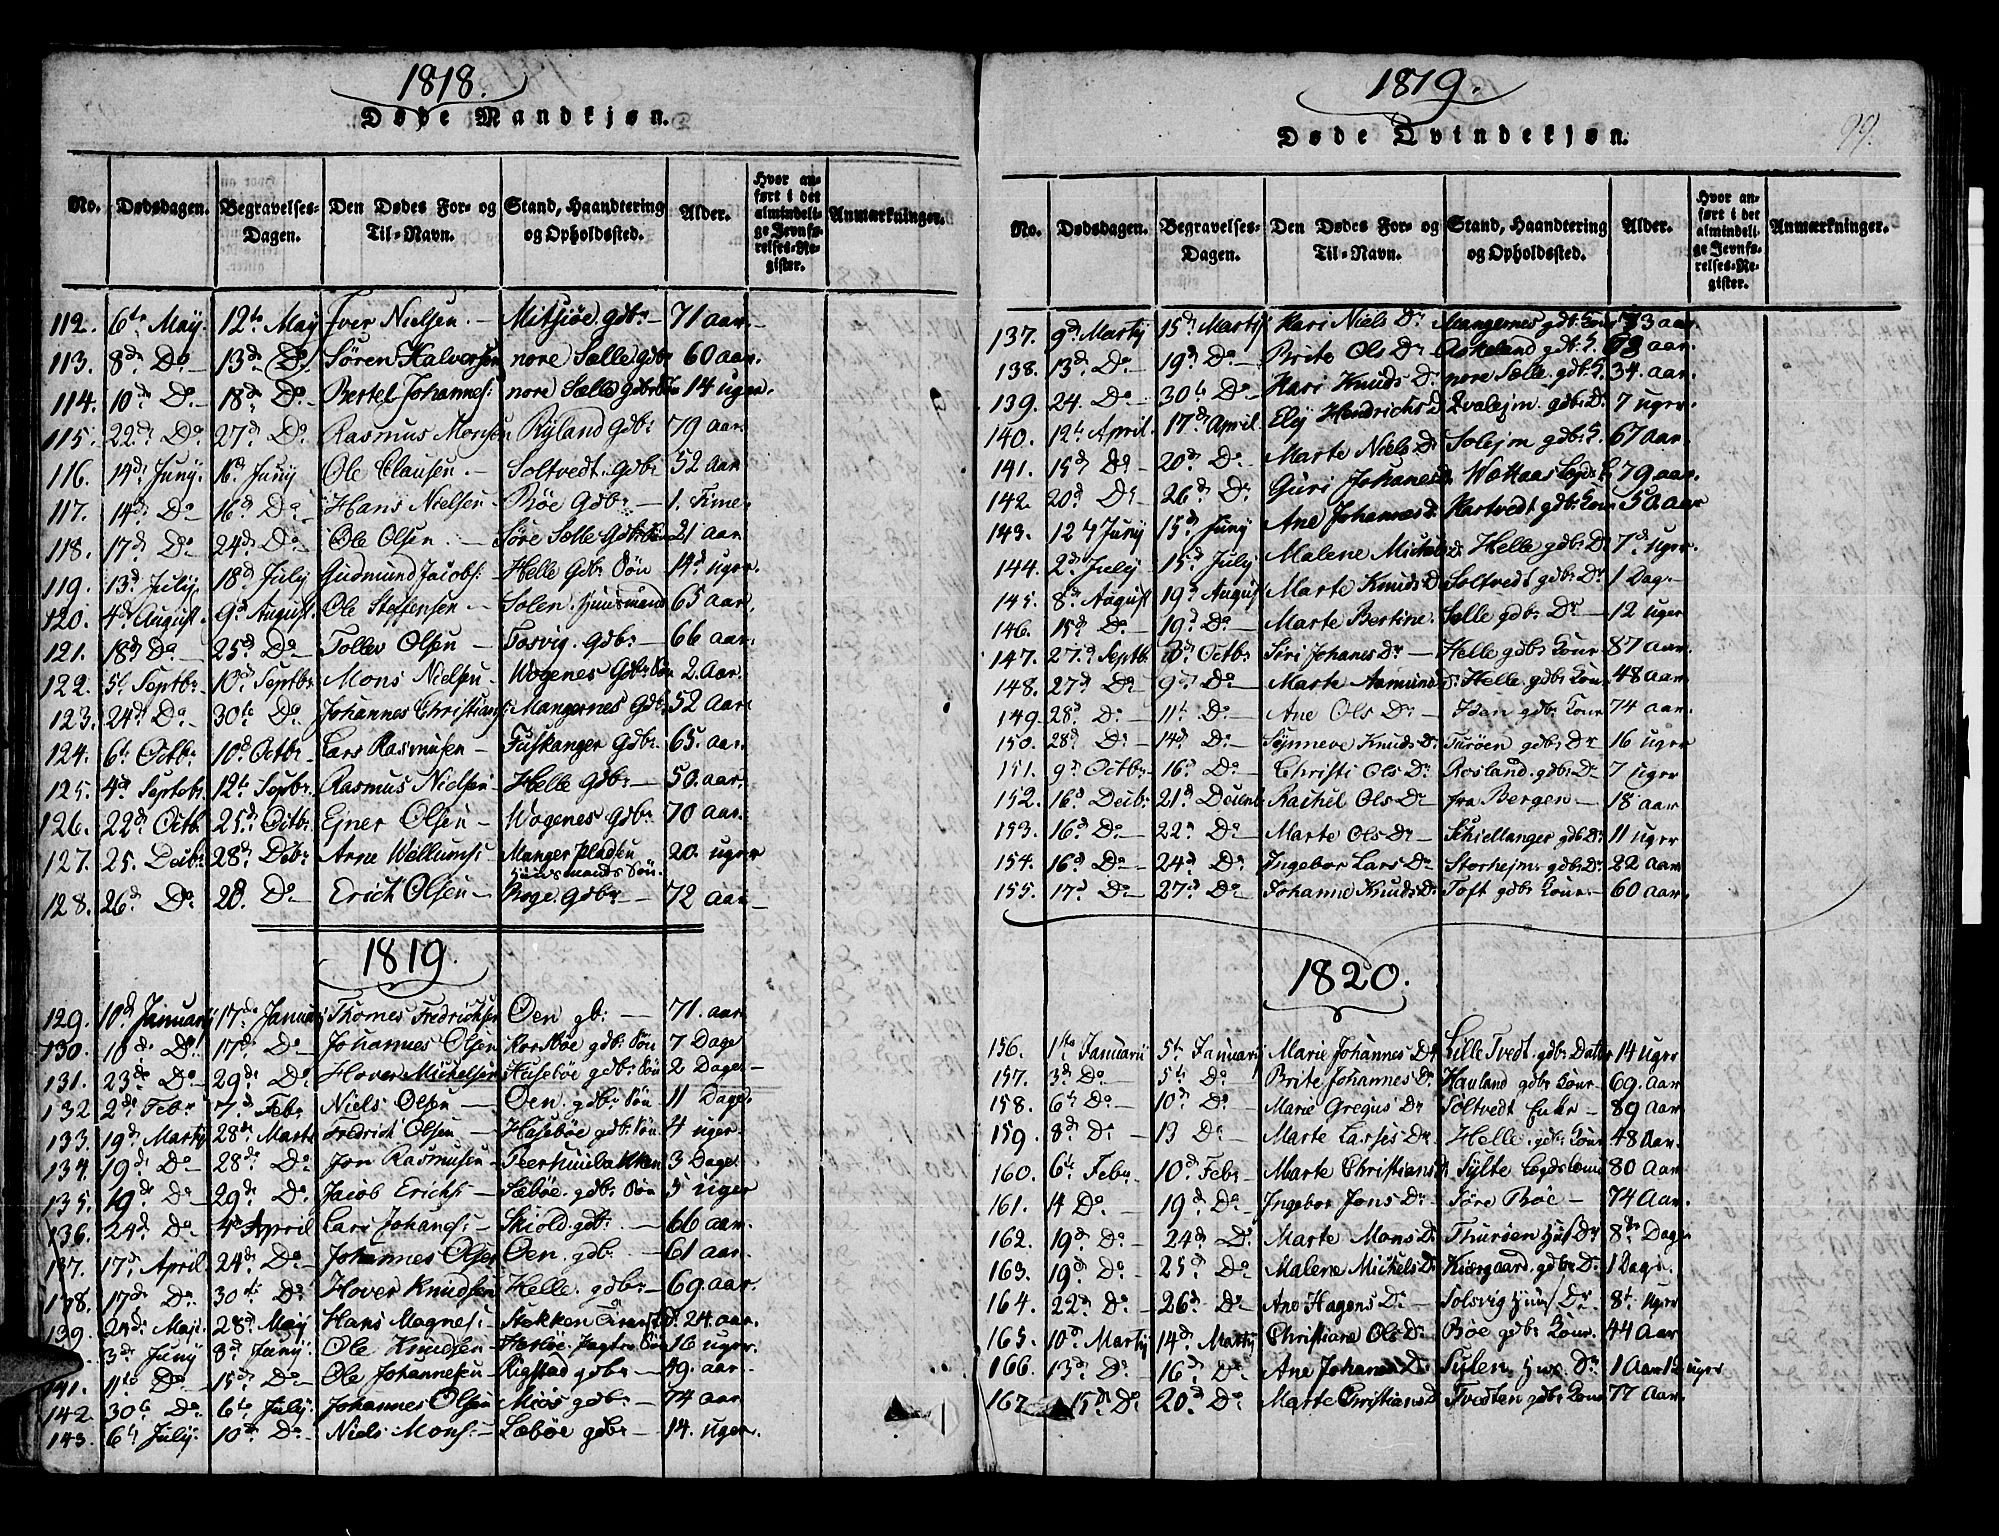 1818.
Døde Mandkjøn.
No. Dødsdagen. Begravelses-Dagen. Den Dødes For- og Til-Navn. Stand, Haandtering og Opholdssted. Alder. Hvor anført i det almindelige Jevnførelses-Register. Anmærkninger.
112. 6te May. 12te May Iver Nielsen. — Mitsiøe. gdbr — 71 aar. —
113. 8de Do — 13de Do Søren Halversen nore Sælle gdbr 60 aar.
114. 10de Do — 18de Do — Bertel Johannes: nore Sælle gdbr 14 uger.
115. 22de Do — 27de Do Rasmus Monsen Ryland Gdbr 79 aar.
116. 14de Juny. 16d. Juny Ole Clausen. — Soltvedt. gdbr 52 aar
117. 14de Do 16de Do — Hans Nielsen — Bøe Gdbr — 1. Time
118. 17d Do 24de Do — Ole Olsen — Søre Sælle Gdbr Søn 21 aar
119. 13d July. 18d July Gudmund Jacobs: Helle Gdbr Søn — 14d uger.
120. 4de August. 9d August. Ole Steffensen — Solen. Huusmand 65 aar.
121. 18de Do — 25de Do — Tollev Olsen — Fosvig. Gdbr — 66 aar.
122. 5t Septbr. 10de Septbr Mons Nielsen — Wogenes Gdbr Søn 2. Aar.
123. 24de Do — 30te Do — Johannes Christians: Mangernes Gdbr 52 Aar.
124. 6te Octbr. 10d Octbr Lars Rasmusen — Fuskanger Gdbr. 65. aar.
125. 4d Septebr. 12te Septbr. Rasmus Nielsen Helle Gdbr — 50. aar.
126. 22de Octb. 25de Octbr. Ejner Olsen — Wogenes Gdbr. 70 aar.
127. 25. Decbr. 28de Debr. Arne Wellums: Manger pladsen 20. uger
Huusmands Søn.
128. 26d Do 28. Do — Erich Olsen — Boge. Gdbr — 72 aar —
1819.
129. 10d January 17de Januar Thomes Fredrichsen Øen gb: — 71. aar.
130. 10de Do 17de Do — Johannes Olsen Korsøe gdbr Søn 7 Dage
131. 23de Do — 29de Do Hover Mickelsen Husebøe gdbr Søn 2 Dage.
132. 2de Febr 7d Febr Niels Olsen — Øen. gdbr Søn 11 Dage.
133. 19de Marty 28de Marti Fredrich Olsen — Husebøe gdbr. Søn 4 uger —
134. 19de Do — 28de Do — Jon Rasmusen — 3 Dage.
135. 19de Do — 29de Do Jacob Erichs: — Sæbøe. gdbr Søn 5 uger
136. 24de Do 4de April Lars Johans: — Skiold. gdbr. — 66 aar.
137. 17de April 24de Do — Johannes Olsen Øen. gdbr. — 61 aar.
138. 17de Do 30te Do — Hover Knudsen Helle gdbr — 69. aar.
139. 24de Maj. 28de May Hans Magnes: Stokken 24. aar.
3de Juny 8de Juny Ole Knudsen — 16 uger.
141. 11te Do 15de Do — Ole Johannesen Rigstad gdbr — 49. aar.
142 30te Do 6te July. Johannes Olsen Miøs gdbr — 74 aar
143. 6te July. 10de Do — Niels Mons: — Sæbøe gdbr — 14. uger.
1819.
99.
Døde Qvindekjøn.
No. Dødsdagen. Begravelses-Dagen. Den Dødes For- og Til-Navn. Stand, Haandtering og Opholdssted. Alder. Hvor anført i det almindelige Jevnførelses-Register. Anmærkninger.
137. 9d Marty 15de Marty Kari Niels Dr Mangernes gdbr. Kone 73 aar.
138. 13de Do 19de Do Brite Ols Dr Askeland gdbr. K. aar.
139. 24. Do — 30te Do — Kari Knuds Dr nore Sælle gdbr. K. 34 aar.
140. 12te April. 17d April Ely Hendrichs D. Qvalejm. gdbr. D. 7 uger.
141. 15d Do 20de Do Marte Niels Dr Solejm gdbr. K. 67 aar.
142. 20d Do 26de Do Guri Johanes D. 79 aar.
143. 12te Juny 15d Juny Ane Johannes D. Kartvedt gdbr Kone 50 aar
144. 2de July 15de July Malene Mickels D. Helle gdbr Dr 7d uger.
145. 8de August 19de August Marte Knuds D. Soltvedt gdbr Dr 1 Dag. —
146. 15d Do — 19d Do — Marte Bertine. Sælle gdbr Dr — 12 uger
147. 27de Septbr Octbr Siri Johanes Dr — Helle gdbr Kone 87 Aar
148. 27d Do 9de Do — Marte Asmunds D. Helle. gdbr Kone 48 Aar
149. 28d Do — 11te Do — Ane Ols Dr — gdbr Kone 74 aar.
150. 28d Do — 14d Do — Synneve Knuds D. Turøen gdbr Dr 16 uger
151. 9d Octbr 16d Do — Christi Ols Dr Rosland. gdbr Dr 7 uger
152. 16d Decbr 21de Decbr Rachel Ols Dr fra Bergen — 18 aar
153. 16d Do — 22de Do — Marte Ols Dr Schiellanger gdbr Dr 11 uger
154. 16d Do — 24de Do — Ingebor Lars Dr Storhejm gdbr Dr 22 aar
155. 17d Do 27de Do — Johanne Knuds D. Toft gdbr Kone — 60 Aar.
1820.
156. 1te Januarii 5te January Marie Johannes Dr Lille Tvedt. gdbr Datter 14 uger
157. 3d Do — 5te Do — Brite Johannes Dr Havland gdbr Kone 69. aar
158. 6te Do — 10d Do — Marie Gregus Dr Soltvedt Enke — 89 Aar
159. 8de Do — 13 Do — Marte Lasses Dr Helle gdbr Kone 48 Aar.
160. 6te Febr 10d Febr Marte Christians D. Sylte 80 Aar
161. 14 Do — 19d Do — Ingebor Jons Dr — Søre Bøe — 74 Aar.
162. 19d Do — 24de Do Marte Mons D. Thurøen Huus Dr 8te Dage
163. 19d Do — 25d Do Malene Mickels D. Kiærgaard. gdbr D. 1 Dag.
164. 22de Do 26de Do — Ane Hagens D. — Solsvig Huus Dr 8te uger
165. 10d Marty 14d Marty Christiane Ols D. Bøe gdbr Kone. 44 Aar
166. 13de Do — 16d Do — Ane Johanes D. Sylen. Huus Dr 1 Aar 12 uger
167. 15de Do 20de Do — Marte Christians D. Tvedten gdbr Kone 77 Aar.